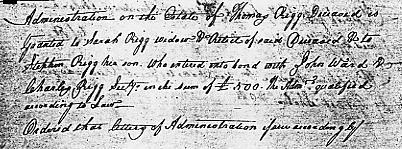 Administration on the Estate of Thomas Rigg Deceased is
Granted to Sarah Rigg widow & Relict of said Deceased & to
Stephen Rigg her son. who entered into bond with John Ward &
Charles Rigg Secty. in the sum of £500. The Admrs. qualified
according to Law
Ordered that letters of Administration issue accordingly